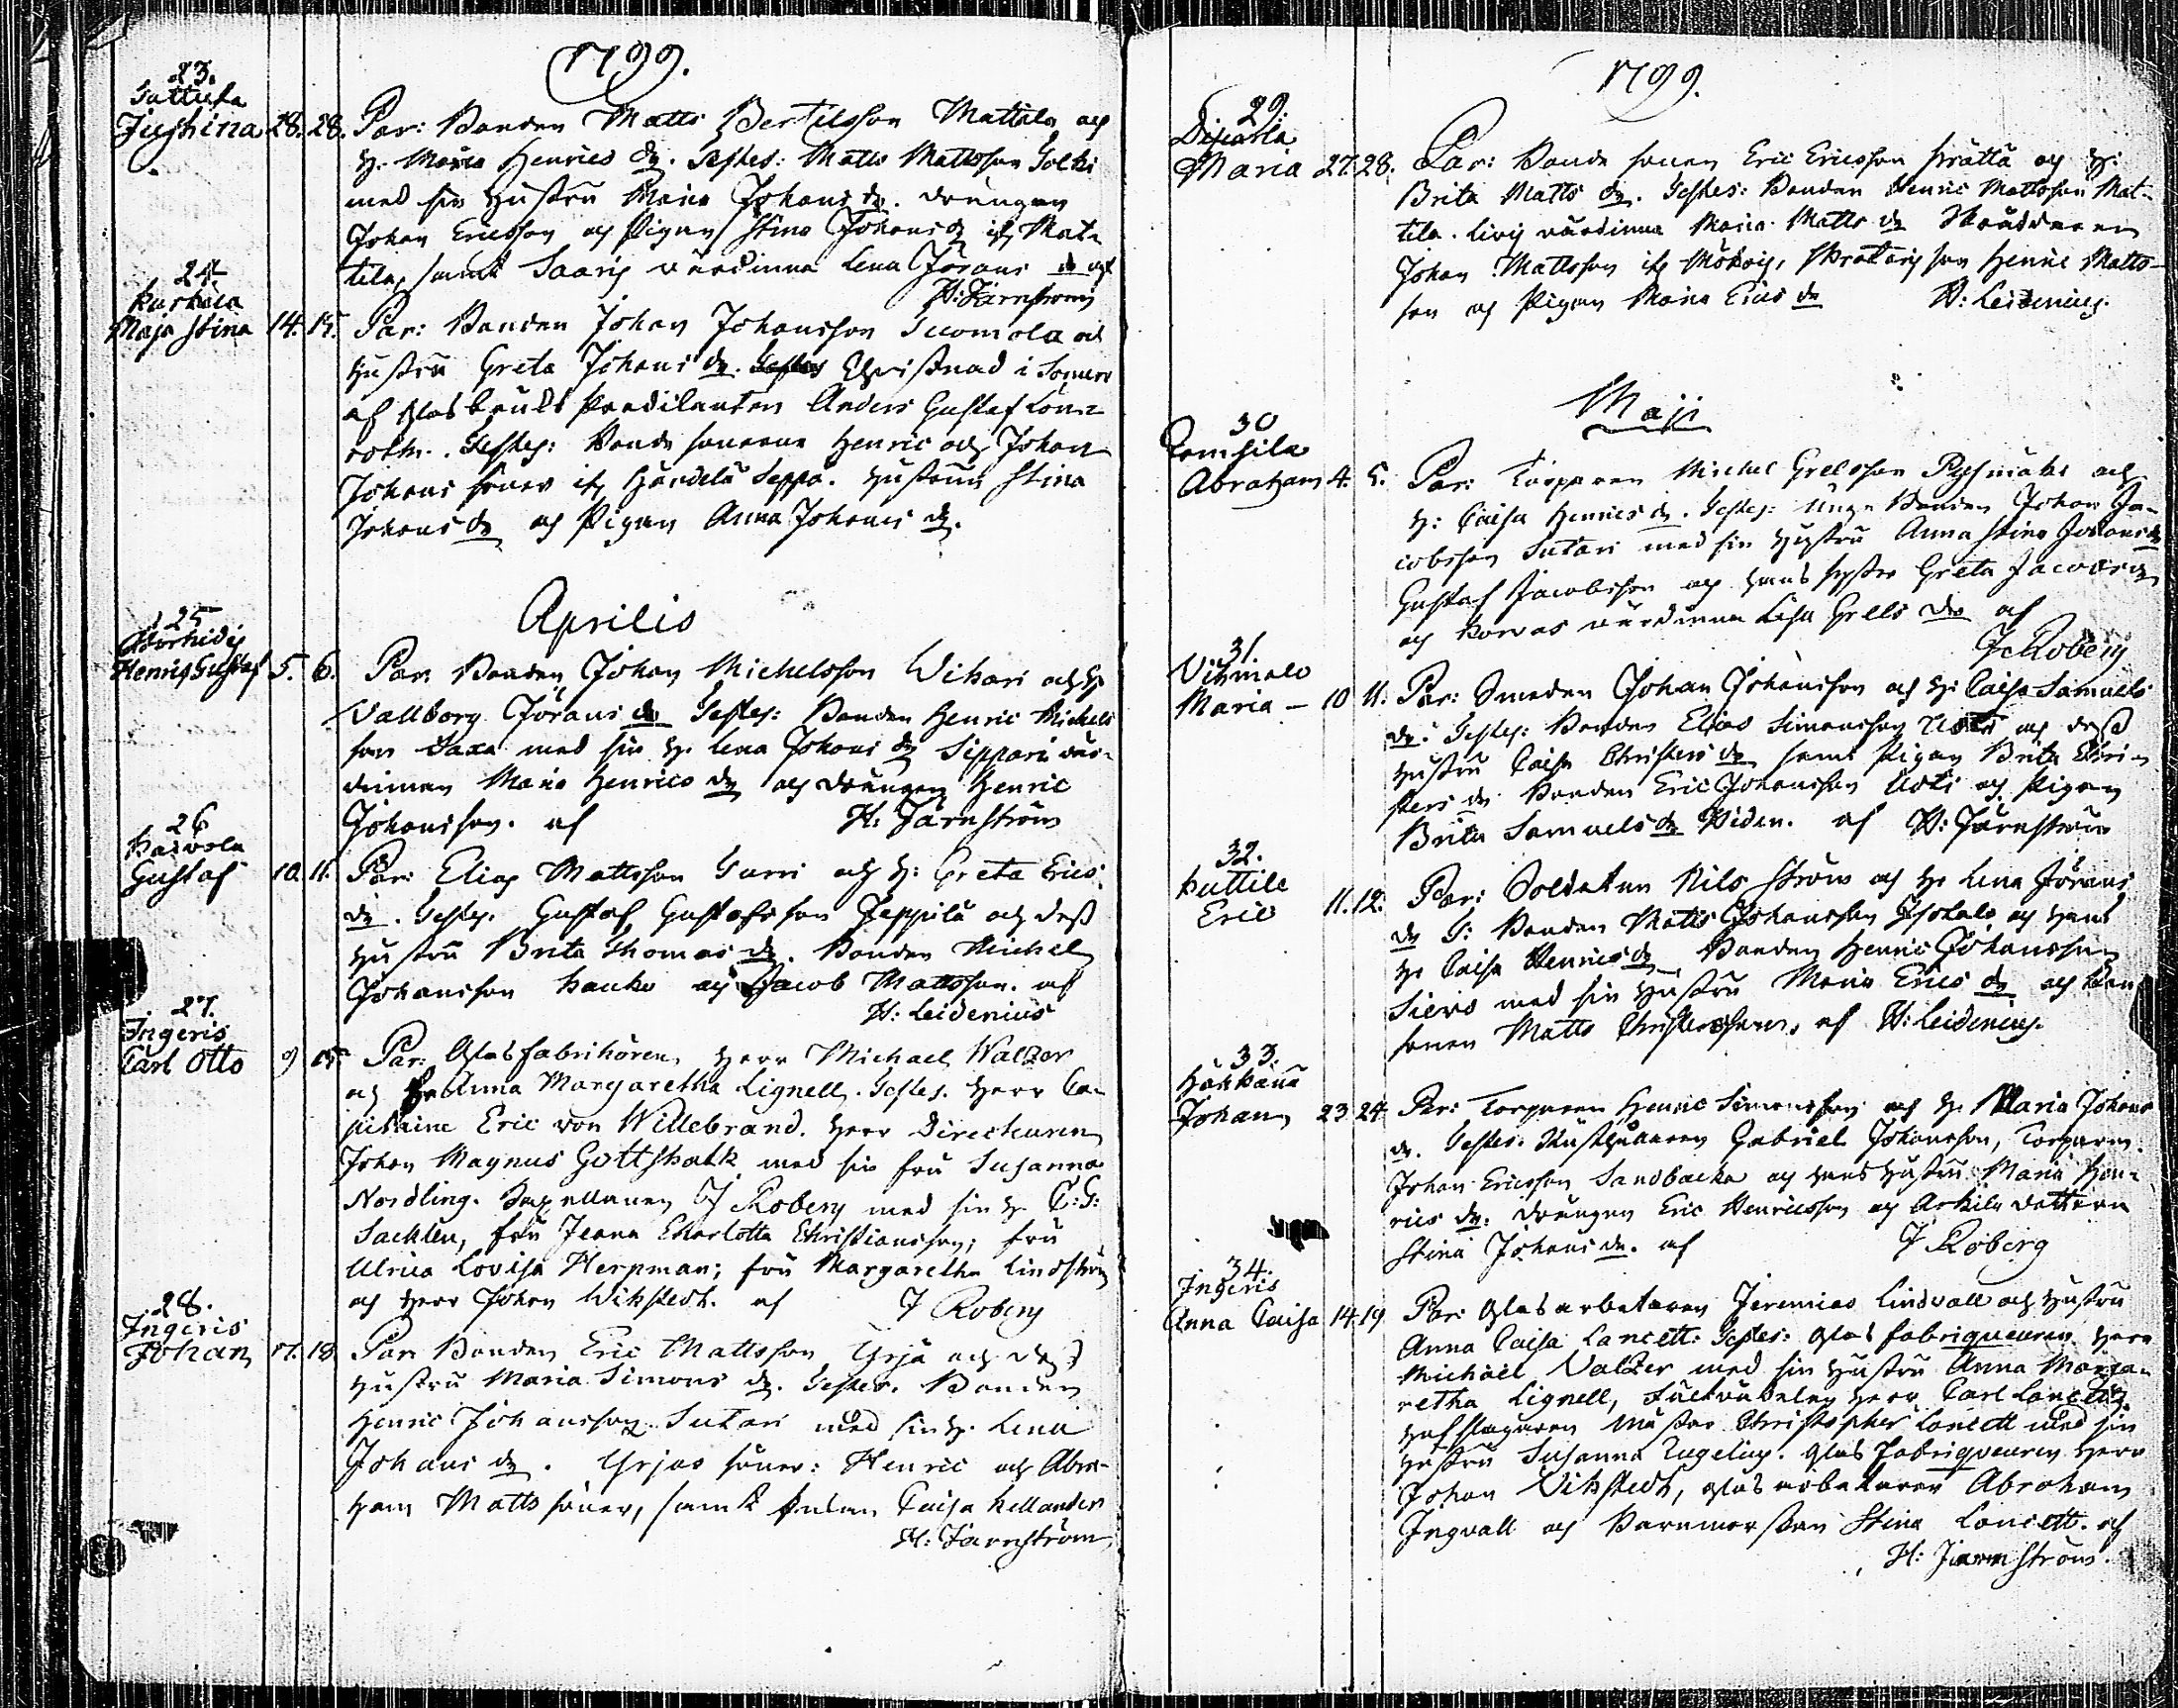 1799.
23.
Jushina 28. 28. Par: Bonden Matts Bertilsson Mattila och
H. Maria Henrics dr. Testes: Matts Mattsson
med sin Hustru Maria Johans dr. drängen
Johan Ericsson och Pigan Stina Johans dr if. Mat-
tila, samt Saaris värdinna Lena Jörans dr af
H: Järnström
24.
Maja Stina 14. 15. Par: Bonden Johan Johansson Suomola och
Hustru Greta Johans dr. Christnad i Somero
af Glasbruks Prædikanten Anders Gustaf Lönn-
roth. Testes: Bonde sönerne Henric och Johan
Johans söner if. Händelä Seppä. Hustrun Stina
Johans dr och Pigan Anna Johans dr.
Aprilis
25
Henric Gustaf 5. 6. Par. Bonden Johan Michelsson Wihari och H.
Vallborg Jörans dr Testes: Bonden Henric Michels
son Saxa med sin H. Lena Johans dr Sippari vär-
dinnan Maria Henrics dr och drängen Henric
Johansson. af H: Järnström
26
Gustaf 10. 11. Par: Elias Mattsson och H: Greta Erics
dr. Testes. Gustaf Gustafsson Jeppilä och dess
Hustru Brita Thomas dr. Bonden Michel
Johansson Hauho och Jacob Mattsson. af
H: Leidenius
27.
Ingeris
Carl Otto 9 15 Par: Glasfabrikören, Herr Michael Walzer
och Fr Anna Margaretha Lignell. Testes. Herr Ca-
pitaine Eric von Willebrand. Herr Directeuren
Johan Magnus Gottshalk med sin fru Susanna
Nordling. Capellanen J Roberg med sin H. C: G:
Sacklen, fru Jeana Charlotta Christiansson; fru
Ulrica Lovisa Herpman; fru Margaretha Lindström
och Herr Johan Wikstedt. af J Roberg
28.
Ingeris
Johan 17. 18 Par Bonden Eric Mattsson Yrjä och dess
Hustru Maria Simons dr. Testes. Bonden
Henric Johansson Sutari med sin H. Lena
Johans dr. Yrjas söner: Henric och Abra-
ham Matts söner, samt Caisa Hellander
H: Järnström
1799.
29.
Maria 27. 28. Par: Bonde sonen Eric Ericsson Prättä och H:
Brita Matts dr. Testes: Bonden Henric Mattsson Mat-
tila. värdinna Maria Matts dr Skräddaren
Johan Mattsson if. son Henric Matts-
son och Pigan Maria Erics dr H: Leidenius.
Maji
30
Abraham 4. 5. Par: Torparen Michel Grelsson Rysmäki och
H: Caisa Henrics dr. Testes: Unge Bonden Johan Ja-
cobsson Sutari med sin Hustru Anna Stina Johans dr
Gustaf Jacobsson och Hans syster Greta Jacobs dr
och värdinna Lisa Grells dr af
J Roberg
31.
Maria — 10 11. Par: Smeden Johan Johansson och H: Caisa Samuels
dr. Testes: Bonden Elias Simonsson Uoti och dess
Hustru Caisa Christers dr samt Pigan Brita Chri-
sters dr Bonden Eric Johansson Uoti och Pigan
Brita Samuels dr Widen. af H: Järnström
32.
Eric 11. 12. Par: Soldaten Nils Ström och H. Lena Jörans
dr T: Bonden Matts Johansson Isotalo och Hans
H: Caisa Henrics dr Bonden Henric Johansson
Siero med sin Hustru Maria Erics dr och Bon-
sonen Matts Christersson, af H: Leidenius.
33.
Johan, 23 24. Par: Torparen Henric Simonsson och H. Maria Johans
dr. Testes. Rusthållaren Gabriel Johansson, Torparen
Johan Ericsson Sandbacka och Hans Hustru Maria Hen-
rics dr. drängen Eric Henricsson och dottren
Stina Johans dr. af J Roberg
34.
Ingeris
Anna Caisa 14. 19 Par: Glasarbetaren Jeremias Lindvall och Hustru
Anna Caisa Lancett: Testes: Glas fabriqueuren Herr
Michael Valzer med sin Hustru Anna Marga-
retha Lignell, Herr Carl Lancett,
Mäster Christopher Lancett med sin
Hustru Susanna Engelin. Glas fabriqueuren Herr
Johan Vikstedt, Glas arbetaren Abraham
Ingvall och Barnmorskan Stina Lancett. af
H: Järnström.